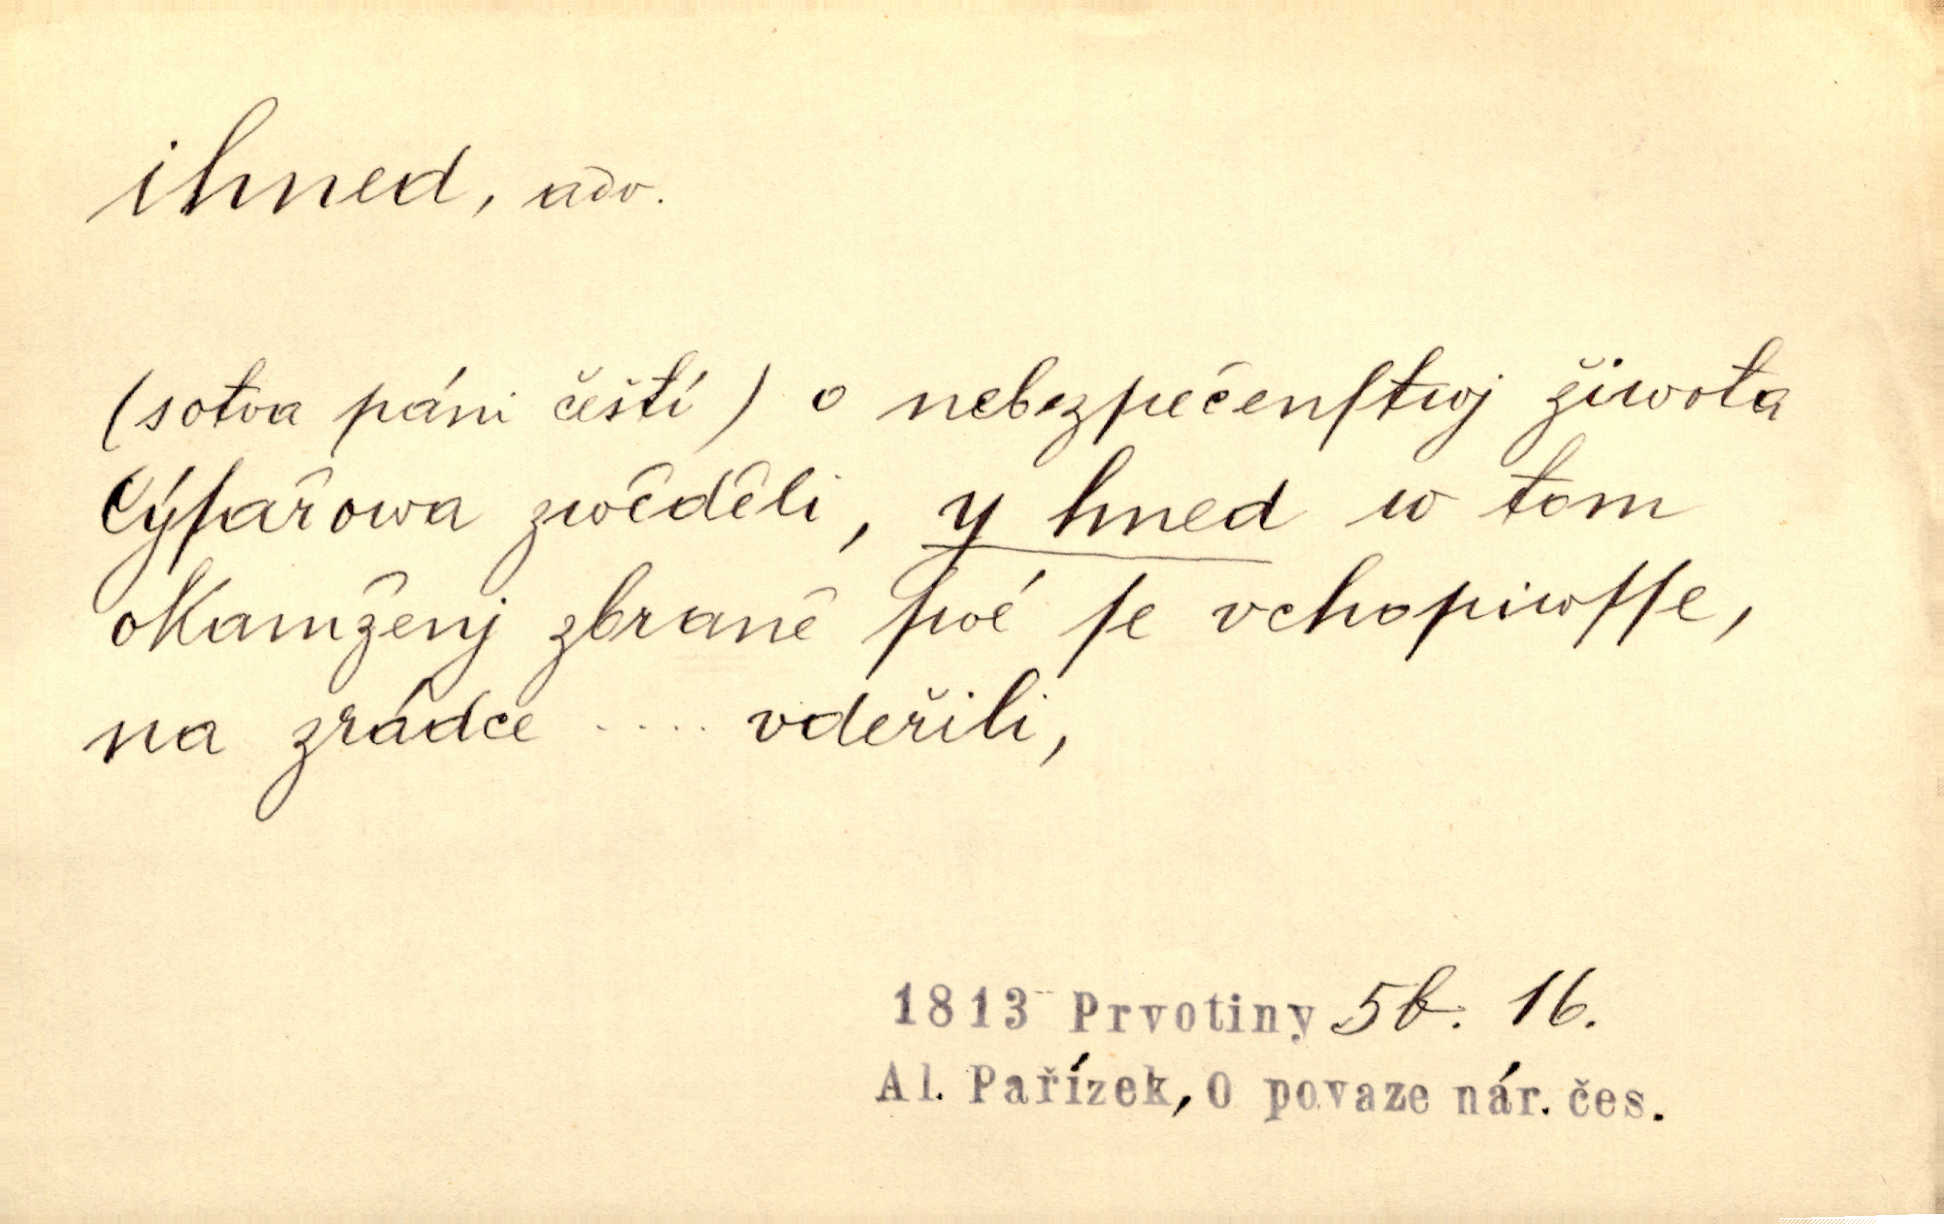 ihned, adv.
(sotva páni čeští) o nebezpečenſtwj žiwota
Cýſařowa zwěděli, y hned w tom
okamženj zbraně ſwé ſe vchopiwſſe,
na zrádce ..... vdeřili,
1813 Prvotiny 5b. 16.
Al. Pařízek, O povaze nár. čes.